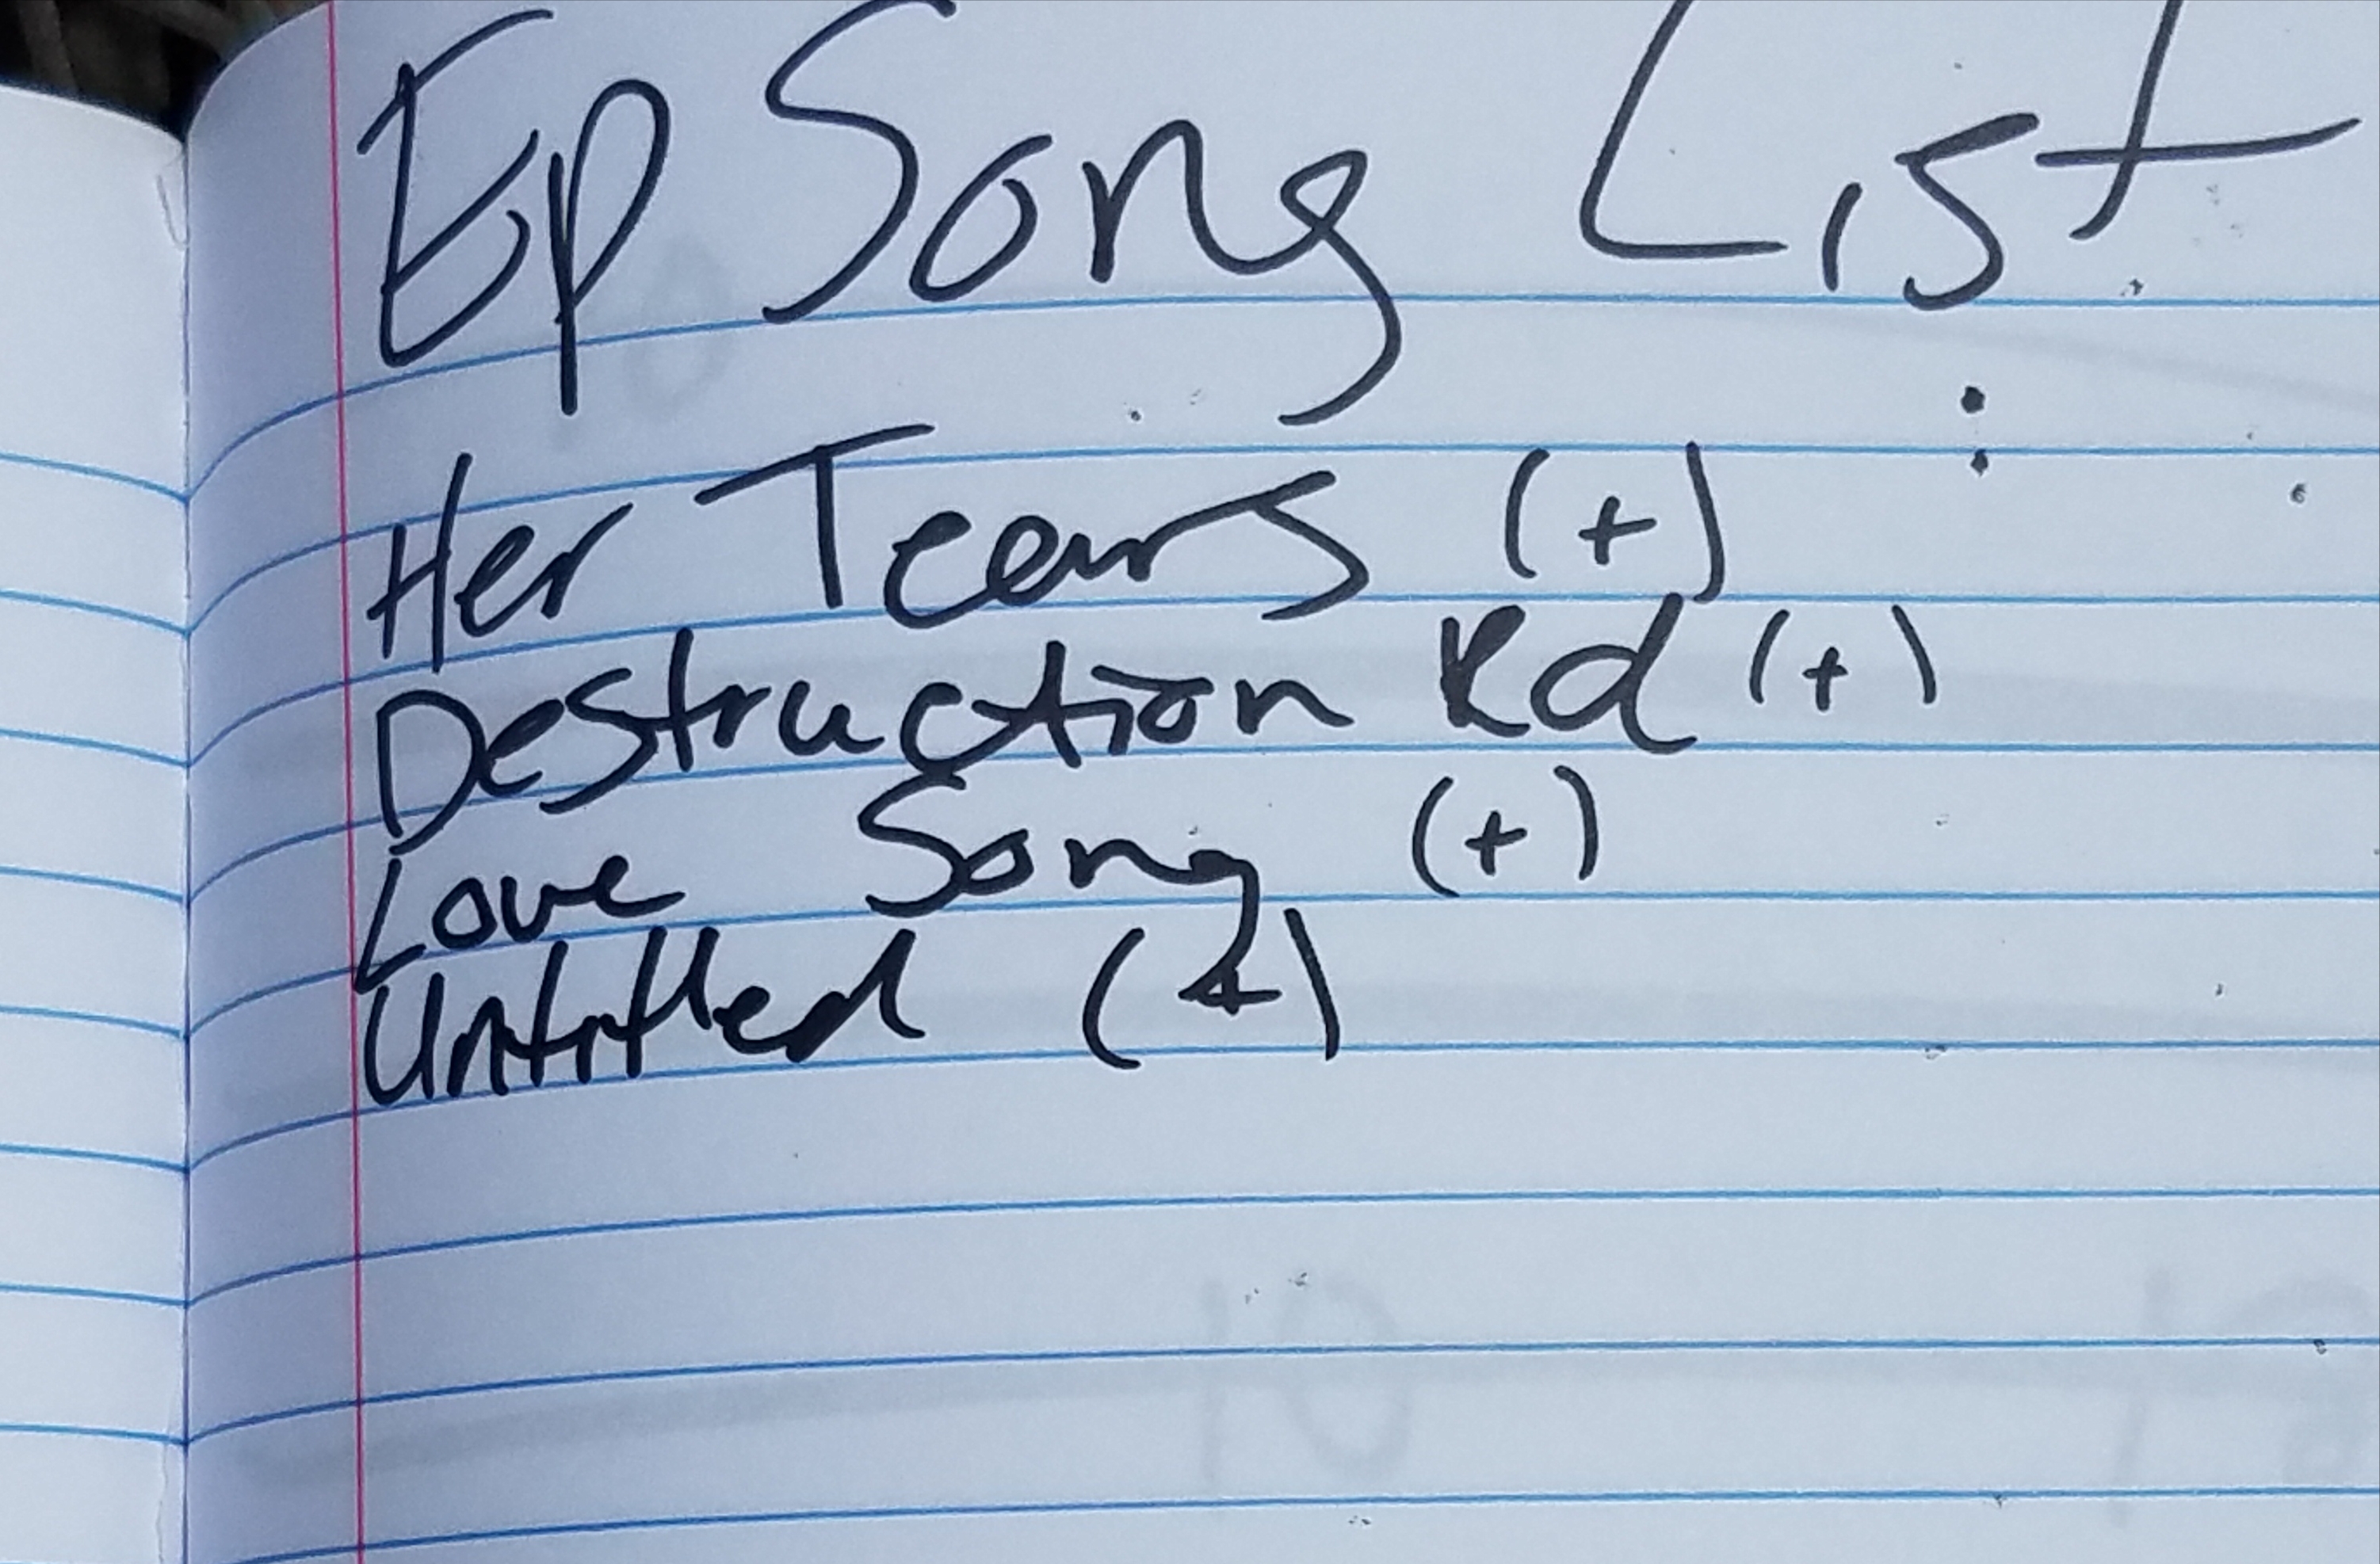 Ep Song List
Her Tears (+)
Destruction Rd (+)
Love Song (+)
Untitled (+)